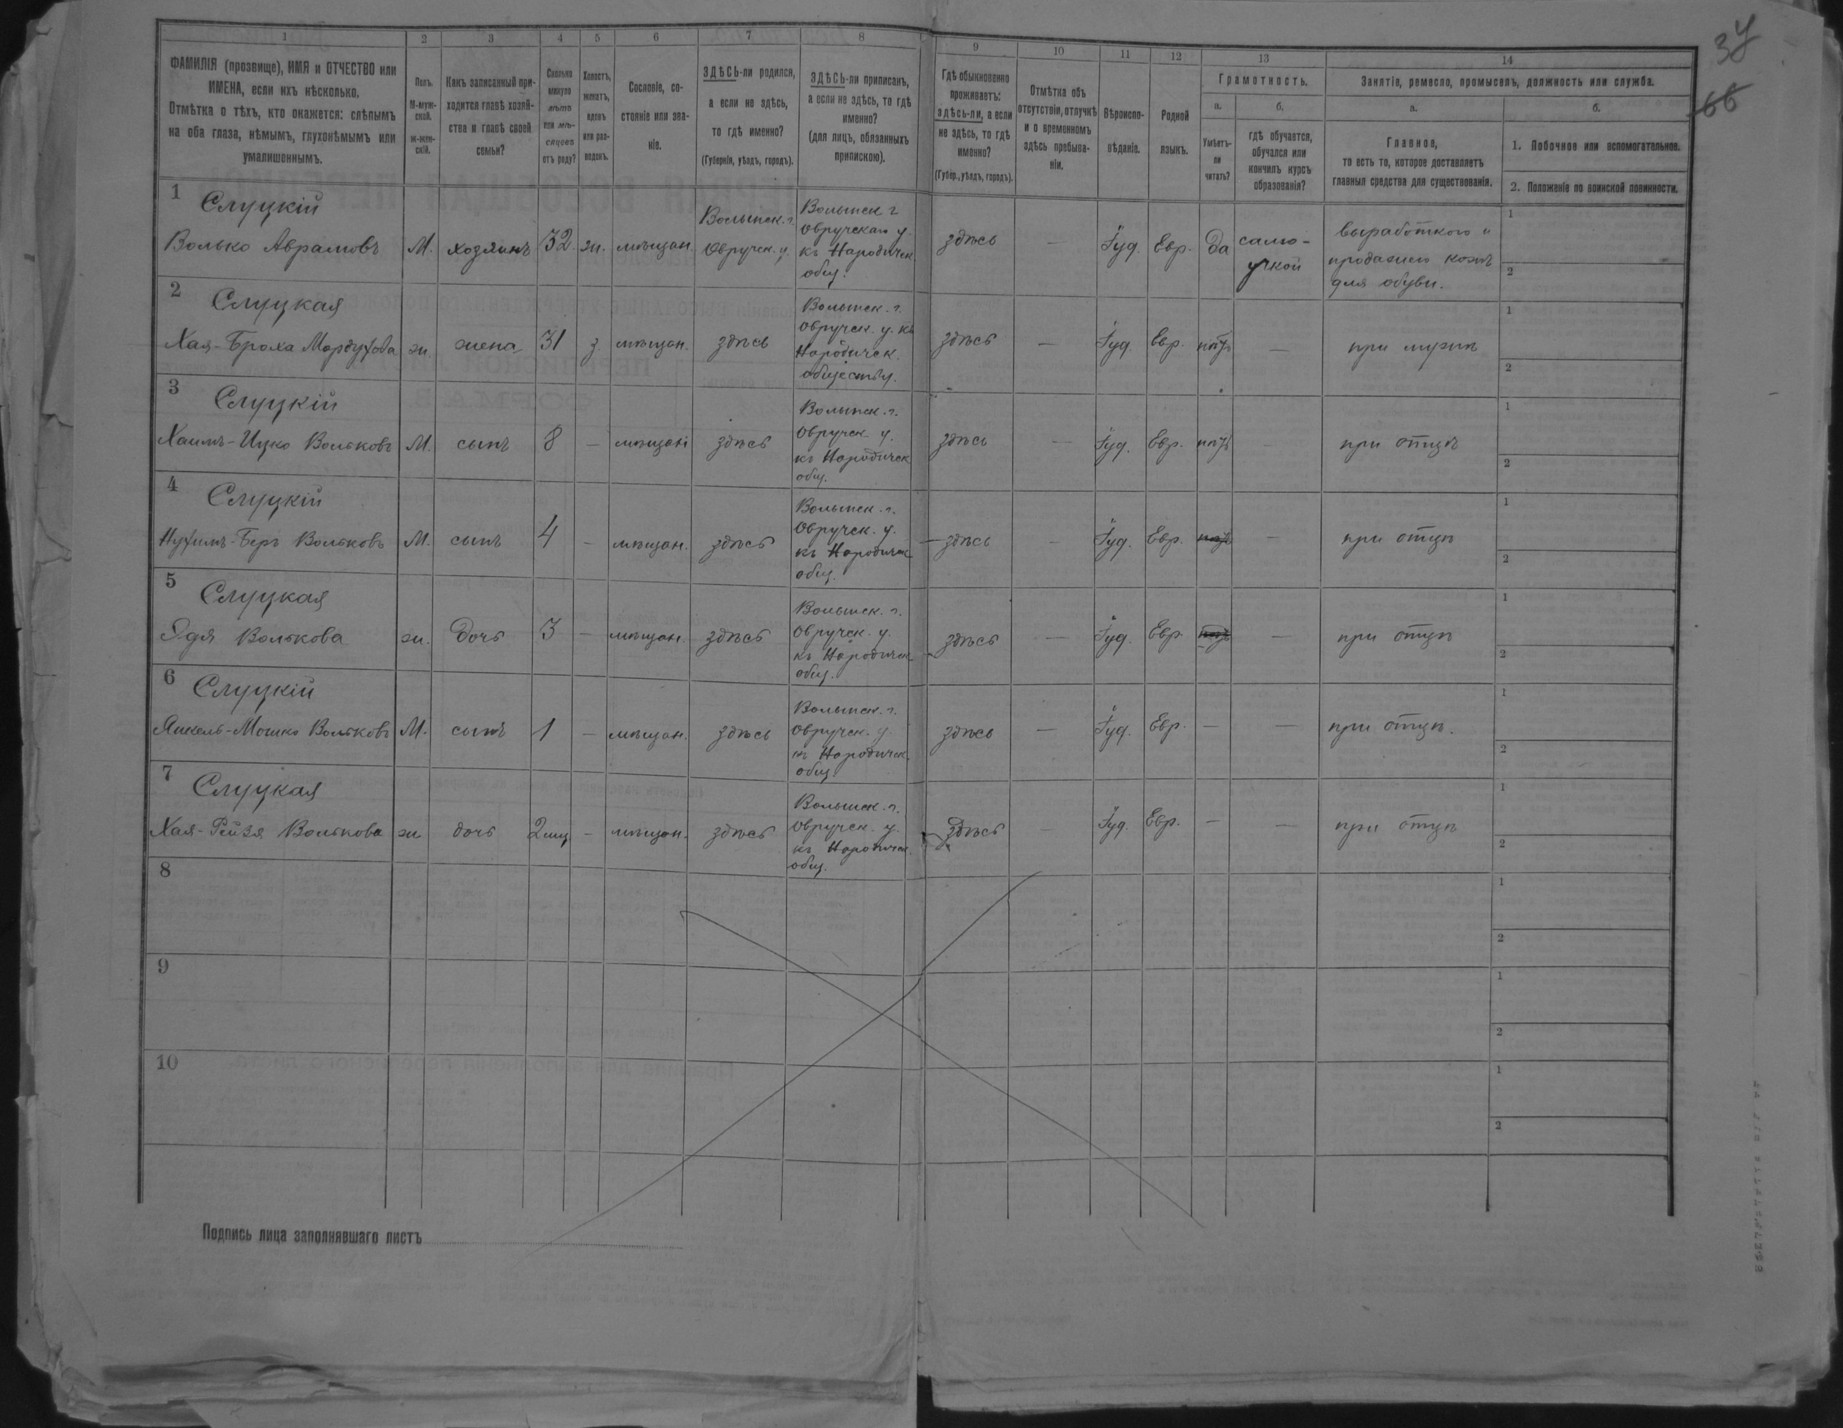 37
66
1 2 3 4 5 6 7 8 9 10 11 12 13 14
ФАМИЛІЯ (прозвище), ИМЯ и ОТЧЕСТВО или
ИМЕНА, если ихъ нѣсколько.
Отмѣтка о тѣхъ, кто окажется: слѣпымъ
на оба глаза, нѣмымъ, глухонѣмымъ или
умалишеннымъ.
Полъ.
М-муж-
ской.
ж-жен-
скій.
Какъ записанный при-
ходится главѣ хозяй-
ства и главѣ своей
семьи?
Сколько
минуло
лѣтъ
или мѣ-
сяцевъ
отъ роду?
Холостъ,
женатъ,
вдовъ
или раз-
веденъ.
Сословіе, со-
стояніе или зва-
ніе.
ЗДѢСЬ-ли родился,
а если не здѣсь,
то гдѣ именно?
(Губернія, уѣздъ, городъ).
ЗДѢСЬ-ли приписанъ,
а если не здѣсь, то гдѣ
именно?
(для лицъ, обязанныхъ
припискою).
Гдѣ обыкновенно
проживаетъ:
здѣсь-ли, а если
не здѣсь, то гдѣ
именно?
(Губер., уѣздъ, городъ).
Отмѣтка объ
отсутствіи, отлучкѣ
и о временномъ
здѣсь пребыва-
ніи.
Вѣроиспо-
вѣданіе.
Родной
языкъ.
Грамотность.
а.
Умѣетъ-
ли
читать?
б.
гдѣ обучается,
обучался или
кончилъ курсъ
образованія?
Занятія, ремесло, промыселъ, должность или служба.
а.
Главное,
то есть то, которое доставляетъ
главныя средства для существованія.
б.
1. Побочное или вспомогательное.
2. Положеніе по воинской повинности.
1 Слуцкій
Волько Абрамовъ М. хозяинъ 32 ж. мѣщан.
Волынск. г.
Овручск. у.
Волынск г
Овручскаго у.
къ Народичск
общ.
здѣсь — Іуд. Евр. да
само-
учкой
выработкою и
продажею кожъ
для обуви.
1
2
2 Слуцкая
Хая-Броха Мордухова ж. жена 31 з мѣщан. здѣсь
Волынск. г.
Овручск. у. къ
Народичск.
обществу.
здѣсь — Іуд. Евр. нѣтъ — при мужѣ
1
2
3 Слуцкій
Хаимъ-Ицко Вольковъ М. сынъ 8 — мѣщан здѣсь
Волынск. г.
Овручск у.
къ Народичск
общ.
здѣсь — Іуд. Евр. нѣтъ — при отцѣ
1
2
4 Слуцкій
Нухимъ-Беръ Вольковъ М. сынъ 4 — мѣщан. здѣсь
Волынск. г.
Овручск. у.
къ Народичск
общ.
здѣсь — Іуд. Евр. нѣтъ — при отцѣ
1
2
5 Слуцкая
Эдя Волькова ж. дочь 3 — мѣщан. здѣсь
Волынск. г.
Овручск. у.
къ Народичск
общ.
здѣсь — Іуд. Евр. нѣтъ — при отцѣ
1
2
6 Слуцкій
Янкель-Мошко Вольковъ М. сынъ 1 — мѣщан. здѣсь
Волынск. г.
Овручск. у.
къ Народичск.
общ.
здѣсь — Іуд. Евр. — — при отцѣ.
1
2
7 Слуцкая
Хая-Рейзя Волькова ж дочь 2 мц — мѣщан. здѣсь
Волынск. г.
Овручск. у.
къ Народичск.
общ.
здѣсь — Іуд. Евр. — — при отцѣ
1
2
8
1
2
9
1
2
10
1
2
Подпись лица заполнявшаго листъ